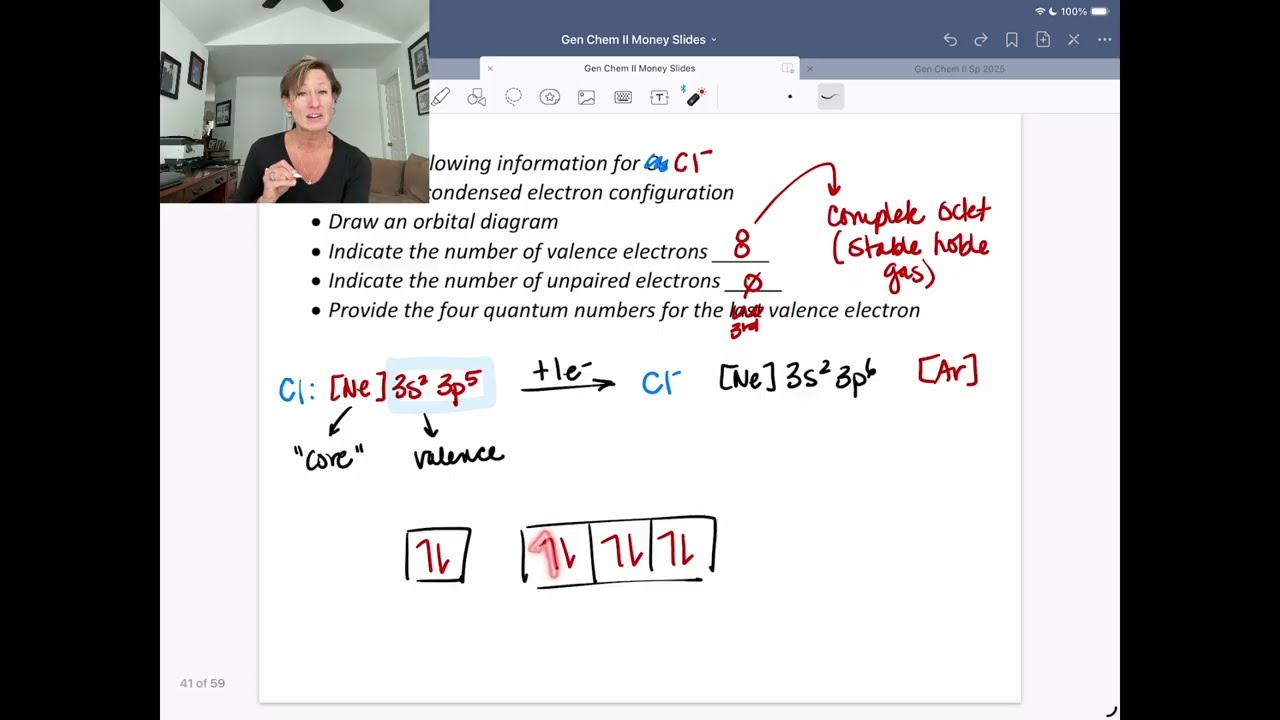 100%
Gen Chem II Money Slides
Gen Chem II Money Slides
Gen Chem II Sp 2025
lowing information for Cl⁻
condensed electron configuration
• Draw an orbital diagram
• Indicate the number of valence electrons 8
• Indicate the number of unpaired electrons 0
• Provide the four quantum numbers for the last valence electron
3rd
complete octet
(stable noble
gas)
Cl: [Ne] 3s² 3p⁵ +1e⁻ Cl⁻ [Ne] 3s² 3p⁶ [Ar]
"core" valence
41 of 59